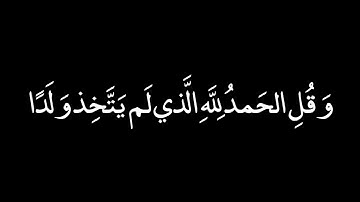 وَ قُلِ الحَمدُ لِلَّهِ الَّذي لَم يَتَّخِذ وَلَدًا